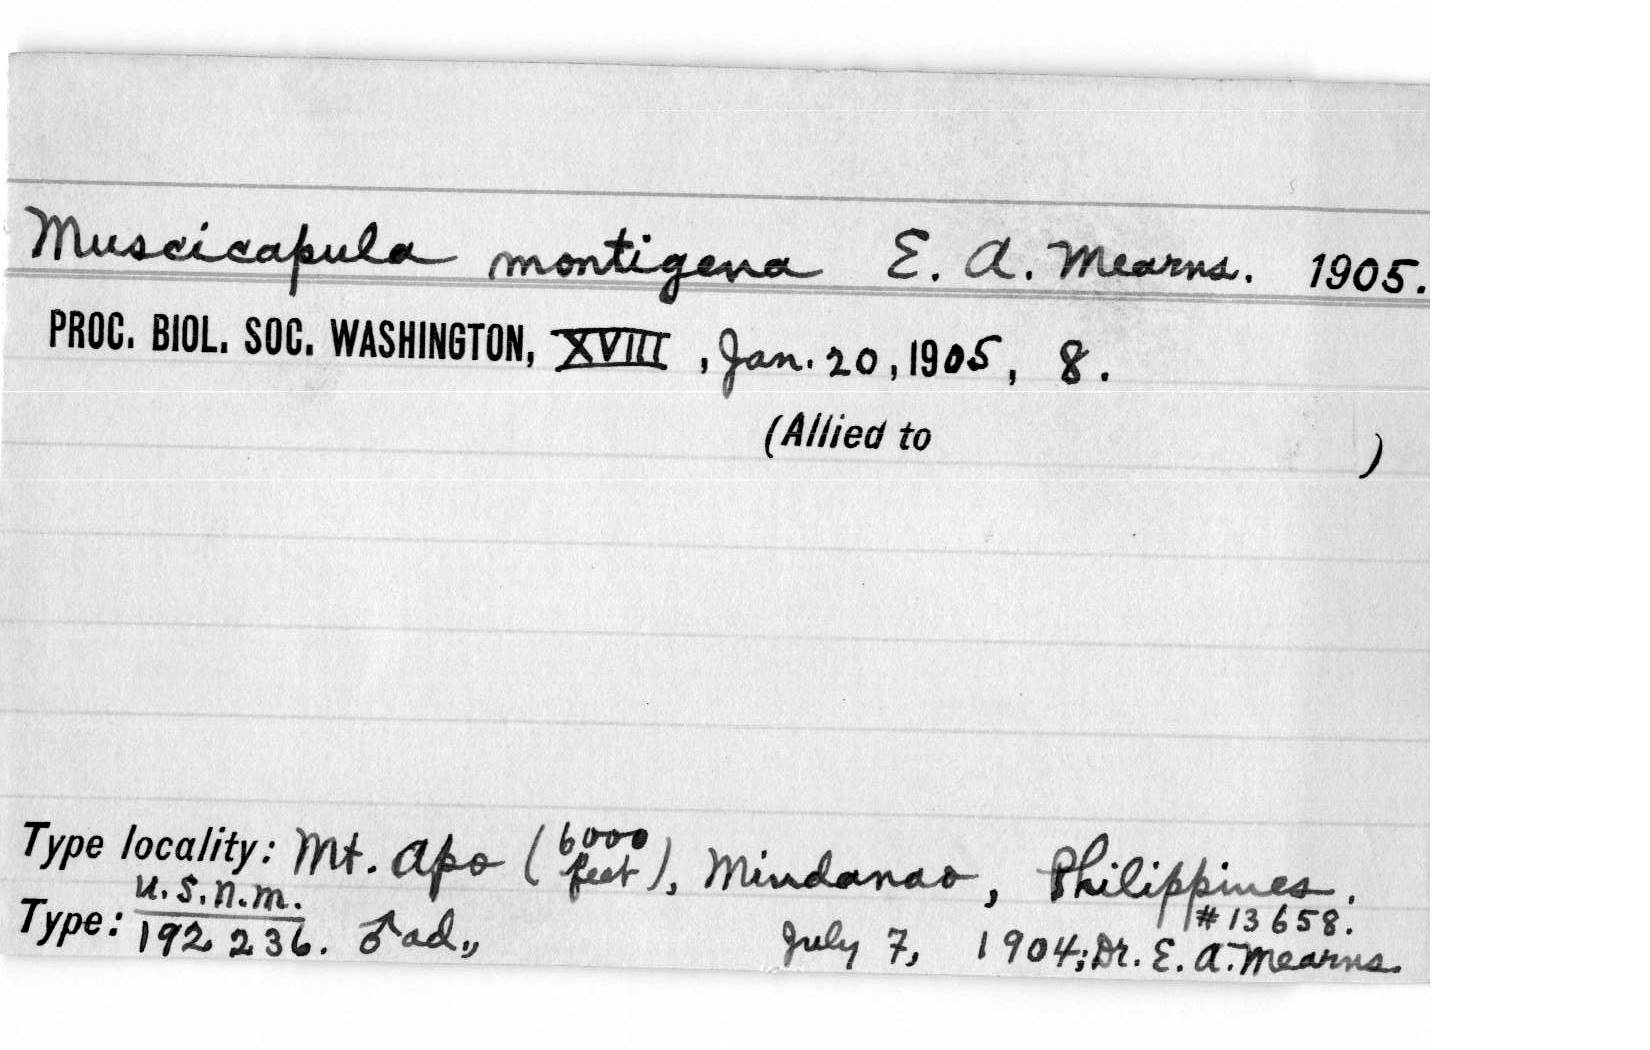 Muscicapula montigena E. A. Mearns. 1905.
PROC. BIOL. SOC. WASHINGTON, XVIII, Jan. 20, 1905, 8.
(Allied to )
Type locality: Mt. Apo (6000 feet), Mindanao, Philippines.
Type: U.S.N.M. 192236. ♂ ad., July 7, 1904; Dr. E. A. Mearns.
#13658.